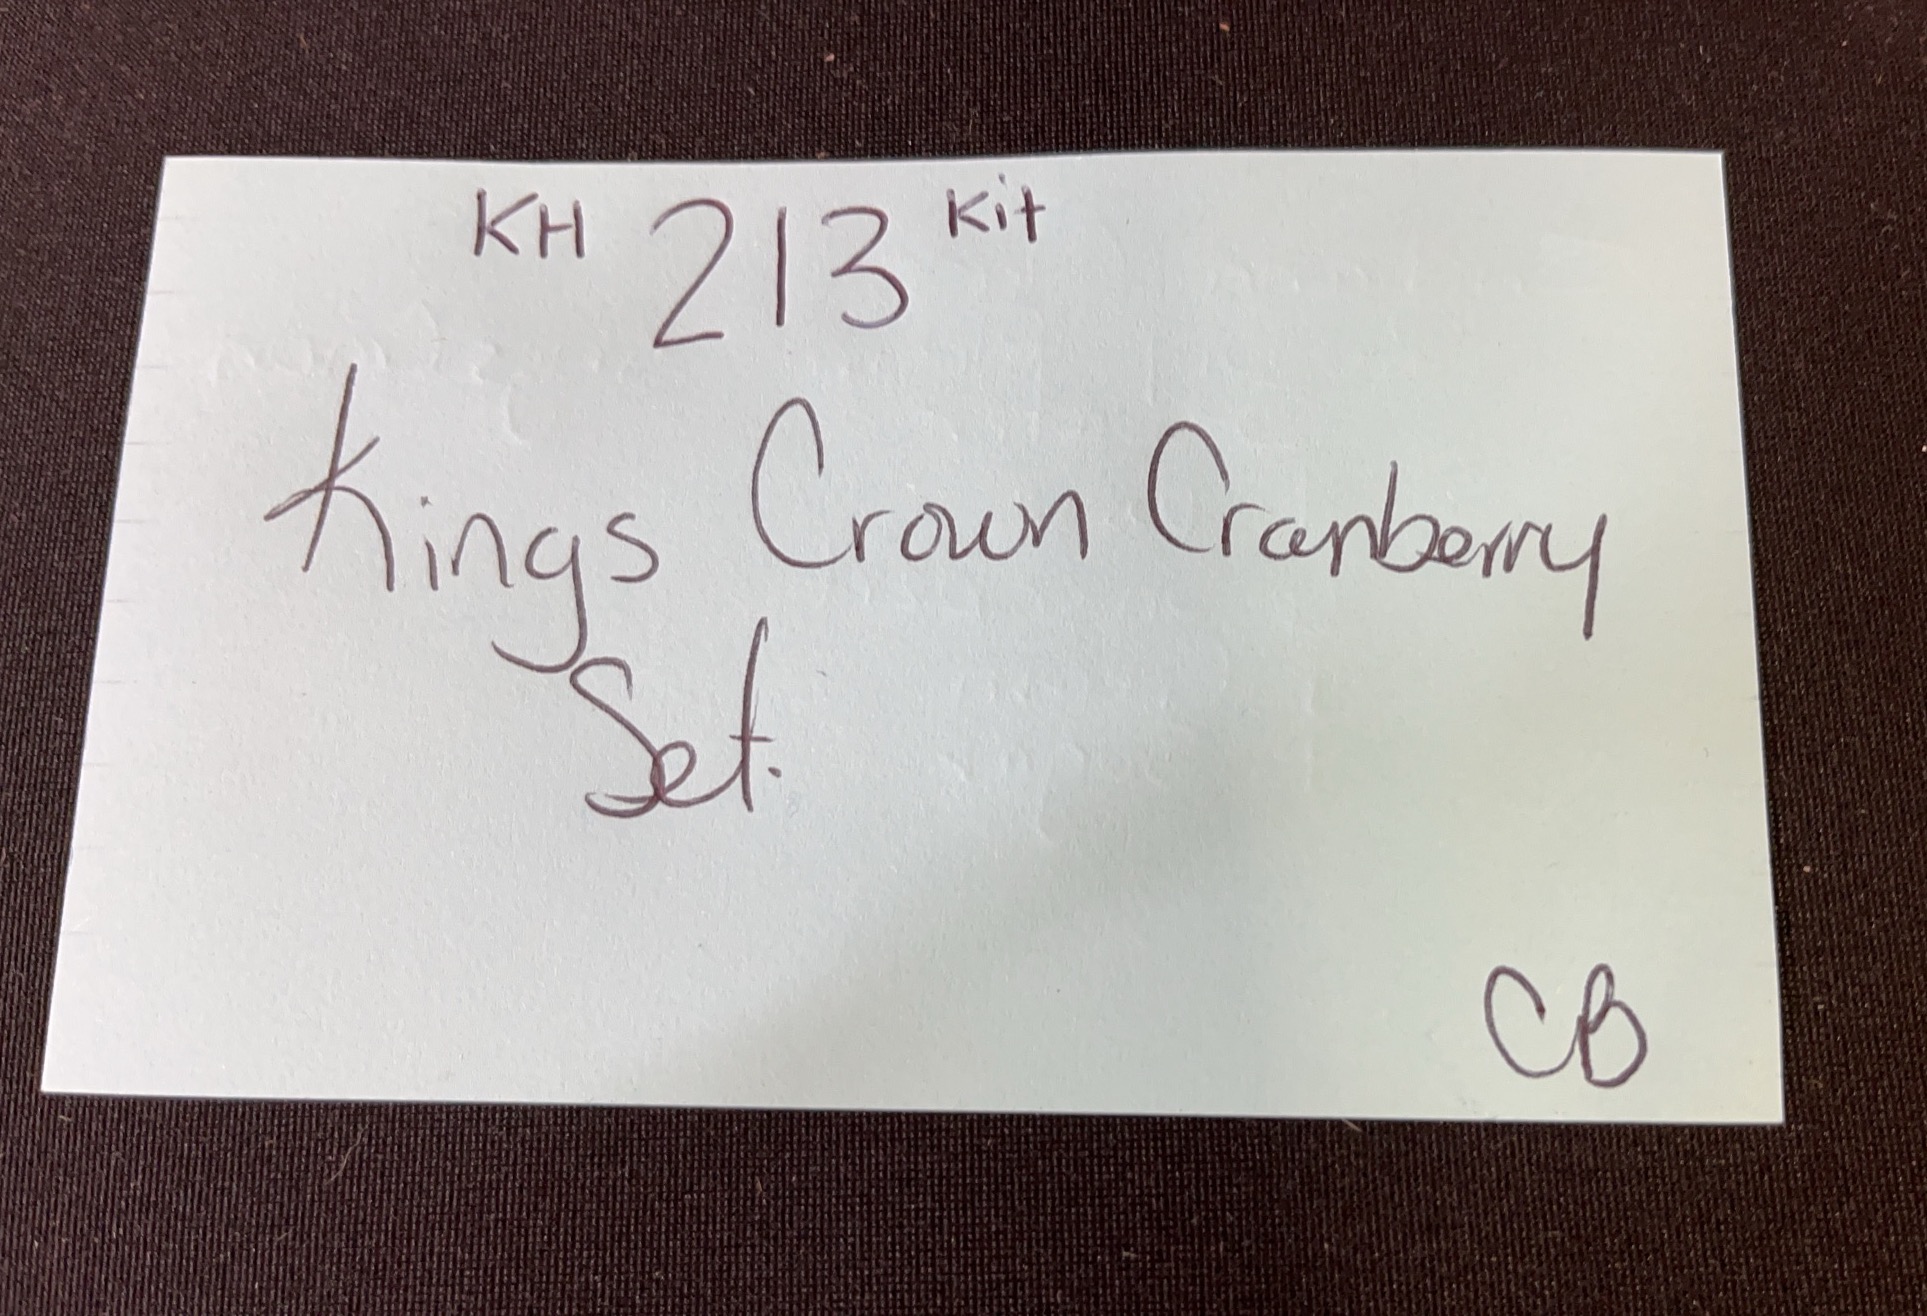 KH 213 Kit
Kings Crown Cranberry
Set.
CB